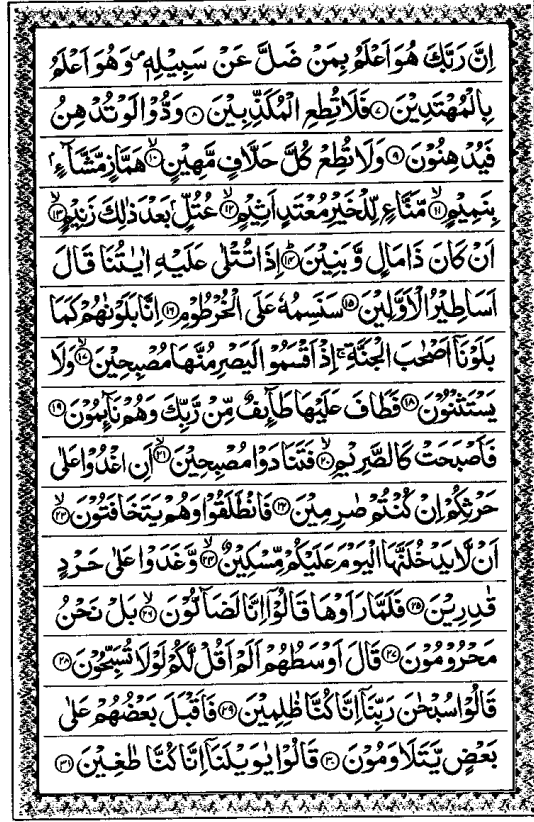 اِنَّ رَبَّكَ هُوَ اَعْلَمُ بِمَنْ ضَلَّ عَنْ سَبِيْلِهٖ ۪ وَهُوَ اَعْلَمُ
بِالْمُهْتَدِيْنَ ۝۷ فَلَا تُطِعِ الْمُكَذِّبِيْنَ ۝۸ وَدُّوْا لَوْ تُدْهِنُ
فَيُدْهِنُوْنَ ۝۹ وَلَا تُطِعْ كُلَّ حَلَّافٍ مَّهِيْنٍ ۝۱۰ۙ هَمَّازٍ مَّشَّآءٍۭ
بِنَمِيْمٍ ۝۱۱ۙ مَّنَّاعٍ لِّلْخَيْرِ مُعْتَدٍ اَثِيْمٍ ۝۱۲ۙ عُتُلٍّۭ بَعْدَ ذٰلِكَ زَنِيْمٍ ۝۱۳ۙ
اَنْ كَانَ ذَا مَالٍ وَّبَنِيْنَ ۝۱۴ؕ اِذَا تُتْلٰى عَلَيْهِ اٰيٰتُنَا قَالَ
اَسَاطِيْرُ الْاَوَّلِيْنَ ۝۱۵ سَنَسِمُهٗ عَلَى الْخُرْطُوْمِ ۝۱۶ اِنَّا بَلَوْنٰهُمْ كَمَا
بَلَوْنَآ اَصْحٰبَ الْجَنَّةِ ۚ اِذْ اَقْسَمُوْا لَيَصْرِمُنَّهَا مُصْبِحِيْنَ ۝۱۷ۙ وَلَا
يَسْتَثْنُوْنَ ۝۱۸ فَطَافَ عَلَيْهَا طَآئِفٌ مِّنْ رَّبِّكَ وَهُمْ نَآئِمُوْنَ ۝۱۹
فَاَصْبَحَتْ كَالصَّرِيْمِ ۝۲۰ۙ فَتَنَادَوْا مُصْبِحِيْنَ ۝۲۱ۙ اَنِ اغْدُوْا عَلٰى
حَرْثِكُمْ اِنْ كُنْتُمْ صٰرِمِيْنَ ۝۲۲ فَانْطَلَقُوْا وَهُمْ يَتَخَافَتُوْنَ ۝۲۳ۙ
اَنْ لَّا يَدْخُلَنَّهَا الْيَوْمَ عَلَيْكُمْ مِّسْكِيْنٌ ۝۲۴ۙ وَّغَدَوْا عَلٰى حَرْدٍ
قٰدِرِيْنَ ۝۲۵ فَلَمَّا رَاَوْهَا قَالُوْٓا اِنَّا لَضَآلُّوْنَ ۝۲۶ۙ بَلْ نَحْنُ
مَحْرُوْمُوْنَ ۝۲۷ قَالَ اَوْسَطُهُمْ اَلَمْ اَقُلْ لَّكُمْ لَوْلَا تُسَبِّحُوْنَ ۝۲۸
قَالُوْا سُبْحٰنَ رَبِّنَآ اِنَّا كُنَّا ظٰلِمِيْنَ ۝۲۹ فَاَقْبَلَ بَعْضُهُمْ عَلٰى
بَعْضٍ يَّتَلَاوَمُوْنَ ۝۳۰ قَالُوْا يٰوَيْلَنَآ اِنَّا كُنَّا طٰغِيْنَ ۝۳۱